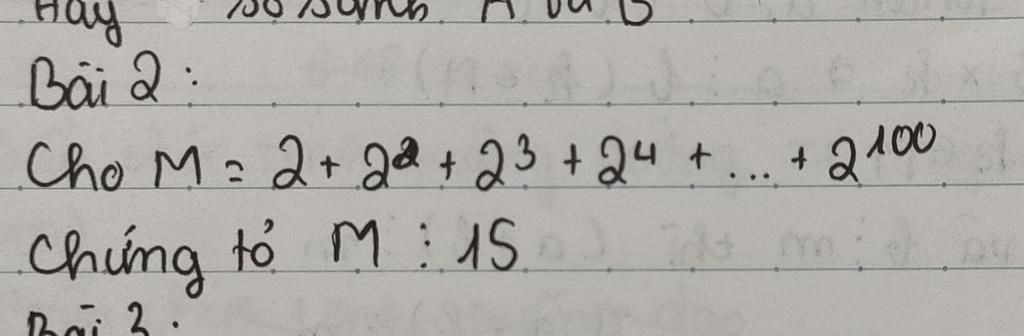 Hãy so sánh A và B
Bài 2:
Cho M = 2 + 2² + 2³ + 2⁴ + ... + 2¹⁰⁰
Chứng tỏ M ⋮ 15
Bài 3: